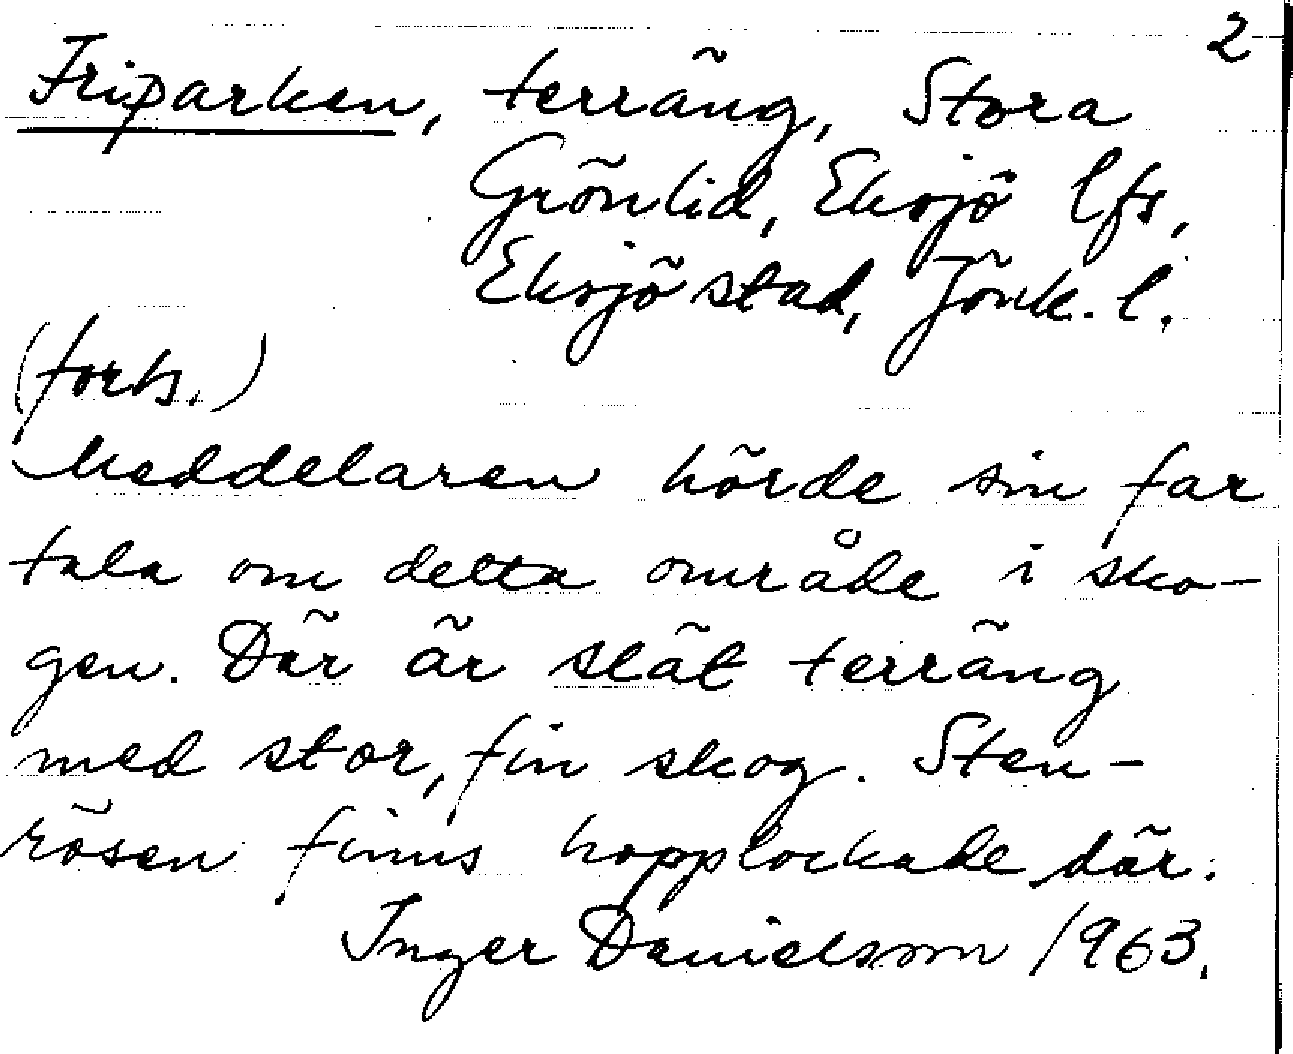 2
Friparken, terräng, Stora
Grönlid, Eksjö lfs,
Eksjö stad, Jönk. l.
(forts.)
Meddelaren hörde sin far
tala om detta område i sko-
gen. Där är slät terräng
med stor, fin skog. Sten-
rösen finns hopplockade där.
Inger Danielsson 1963.